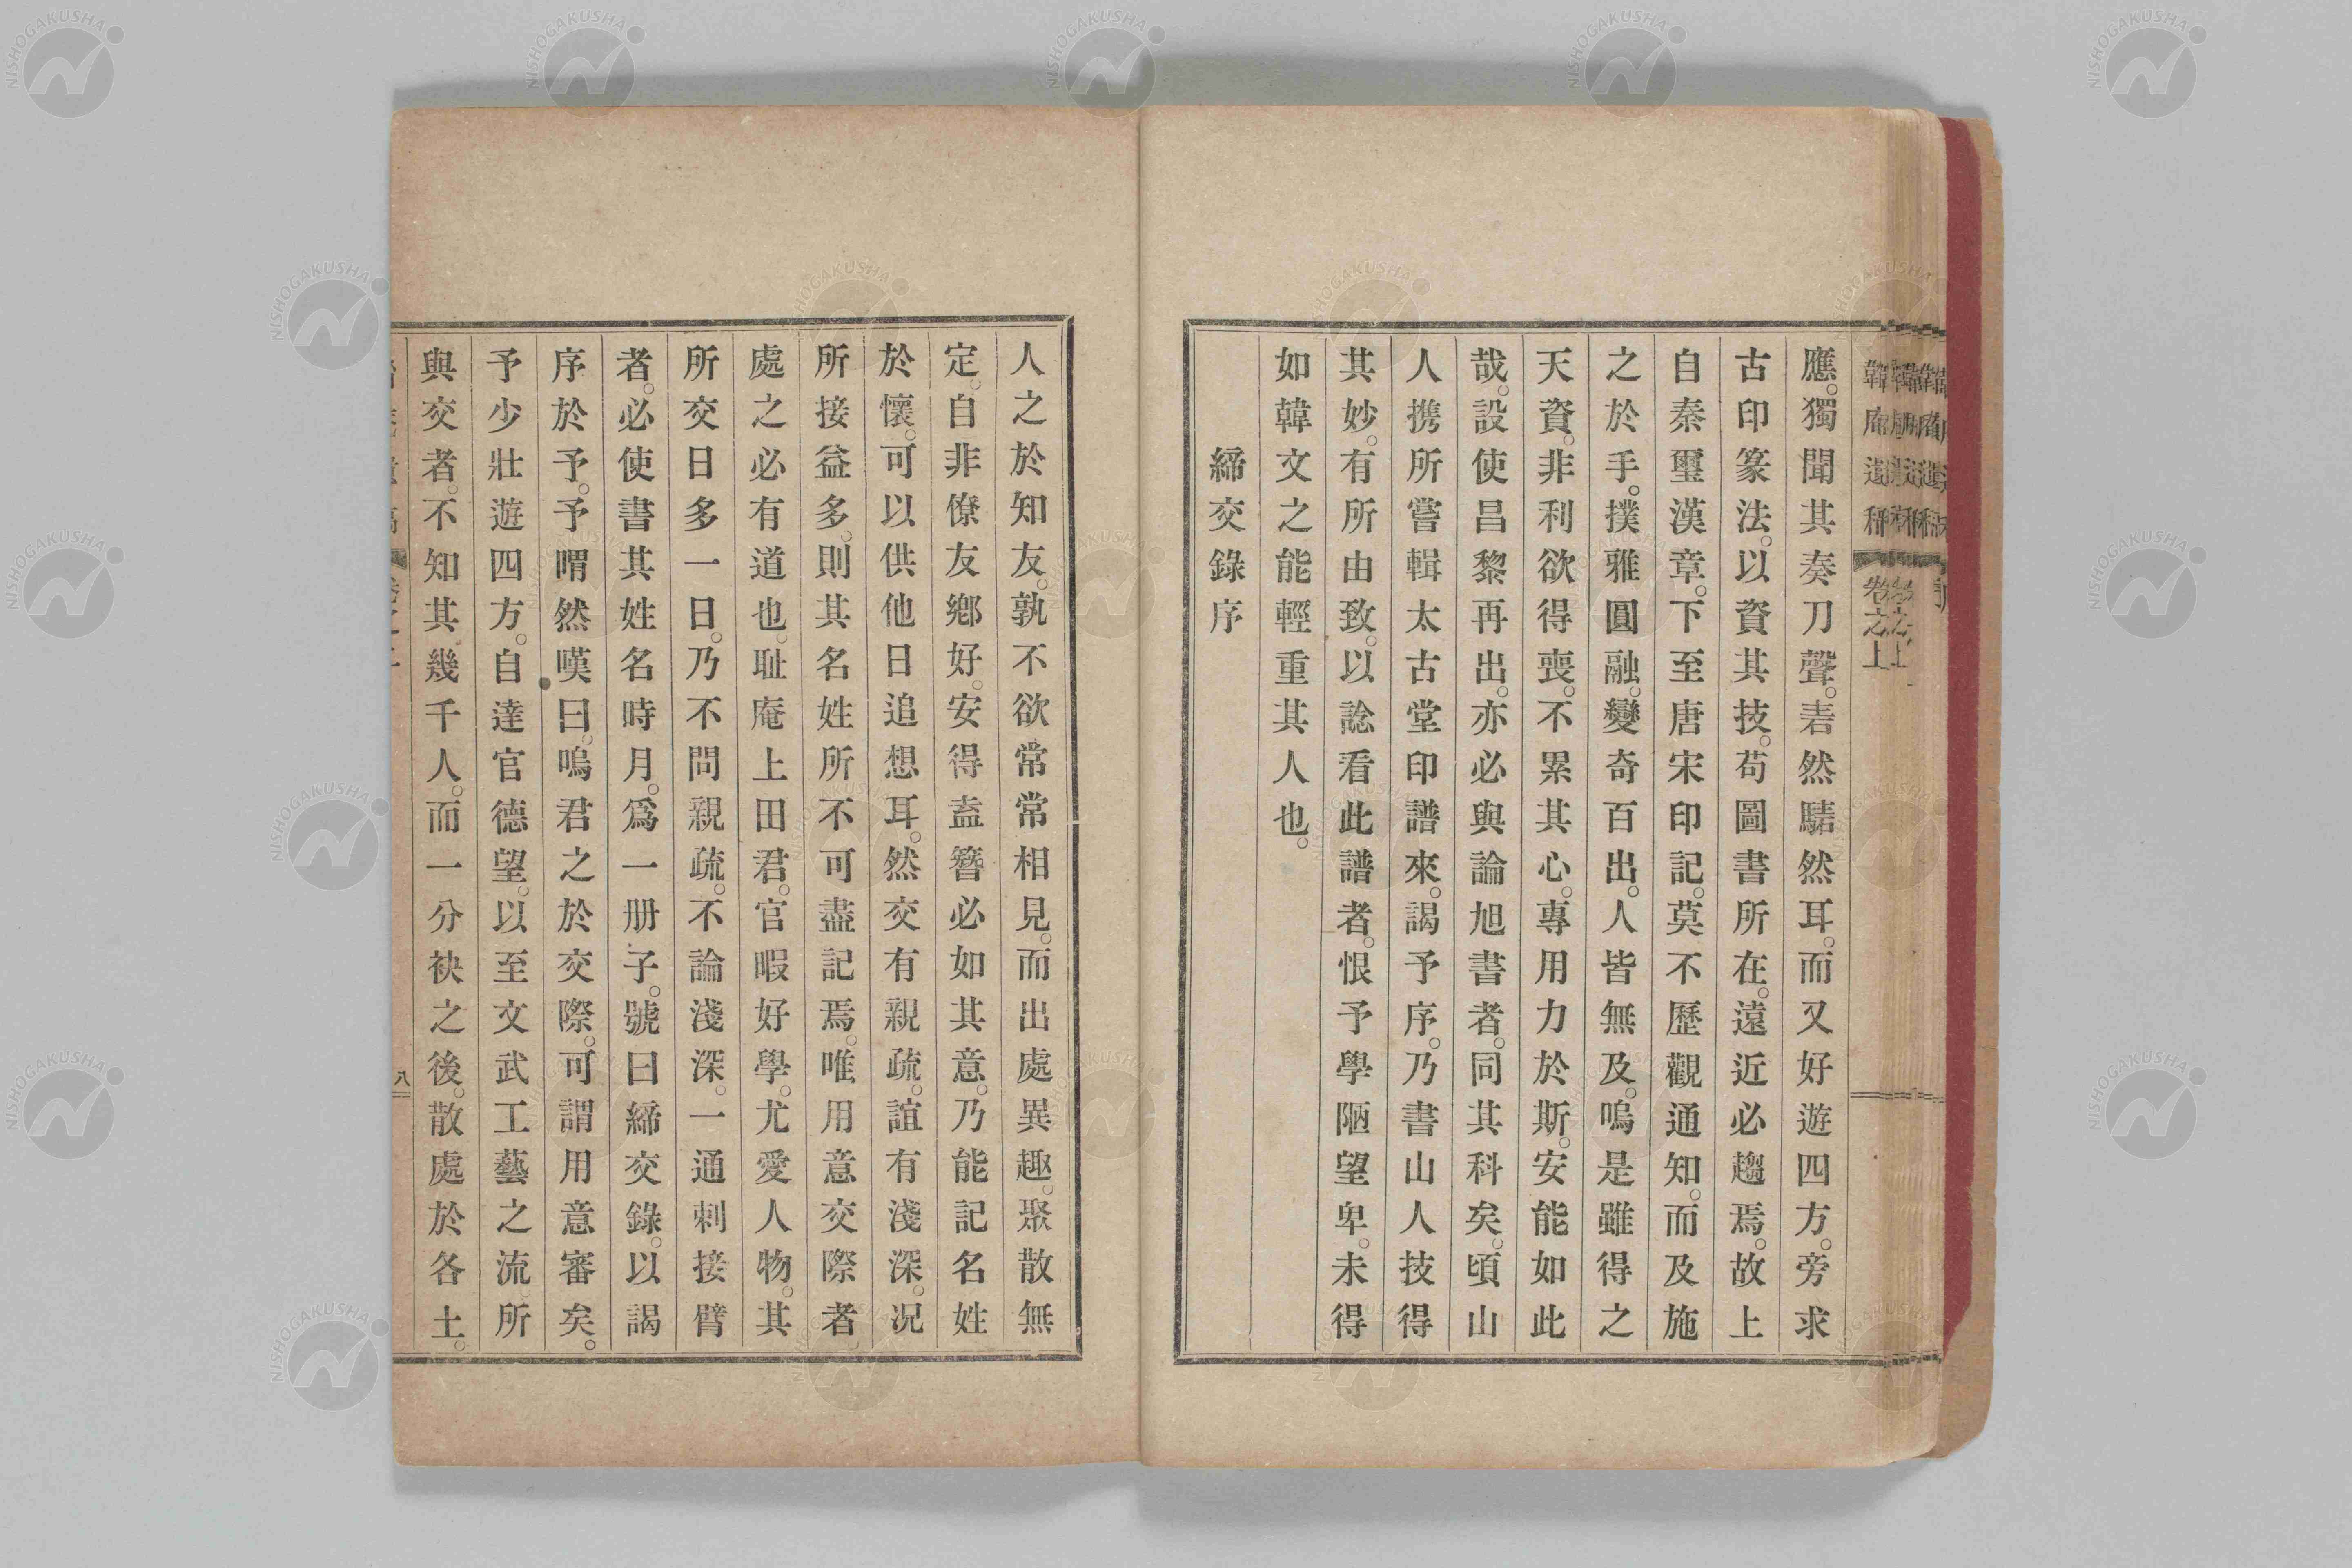 應。獨聞其奏刀聲。砉然騞然耳。而又好遊四方。旁求
古印篆法。以資其技。苟圖書所在。遠近必趨焉。故上
自秦璽漢章。下至唐宋印記。莫不歷觀通知。而及施
之於手。撲雅圓融。變奇百出。人皆無及。嗚是雖得之
天資。非利欲得喪。不累其心。專用力於斯。安能如此
哉。設使昌黎再出。亦必與論旭書者。同其科矣。頃山
人携所嘗輯太古堂印譜來。謁予序。乃書山人技得
其妙。有所由致。以諗看此譜者。恨予學陋望卑。未得
如韓文之能輕重其人也。
締交錄序
人之於知友。孰不欲常常相見。而出處異趣。聚散無
定。自非僚友鄉好。安得盍簪必如其意。乃能記名姓
於懷。可以供他日追想耳。然交有親疏。誼有淺深。況
所接益多。則其名姓所不可盡記焉。唯用意交際者
處之必有道也。耻庵上田君。官暇好學。尤愛人物。其
所交日多一日。乃不問親疏。不論淺深。一通刺接臂
者。必使書其姓名時月。爲一册子。號曰締交錄。以謁
序於予。予喟然嘆曰。嗚君之於交際。可謂用意審矣。
予少壯遊四方。自達官德望。以至文武工藝之流所
與交者。不知其幾千人。而一分袂之後。散處於各土。
八
韓庵遺稿
卷之上
NISHOGAKUSHA